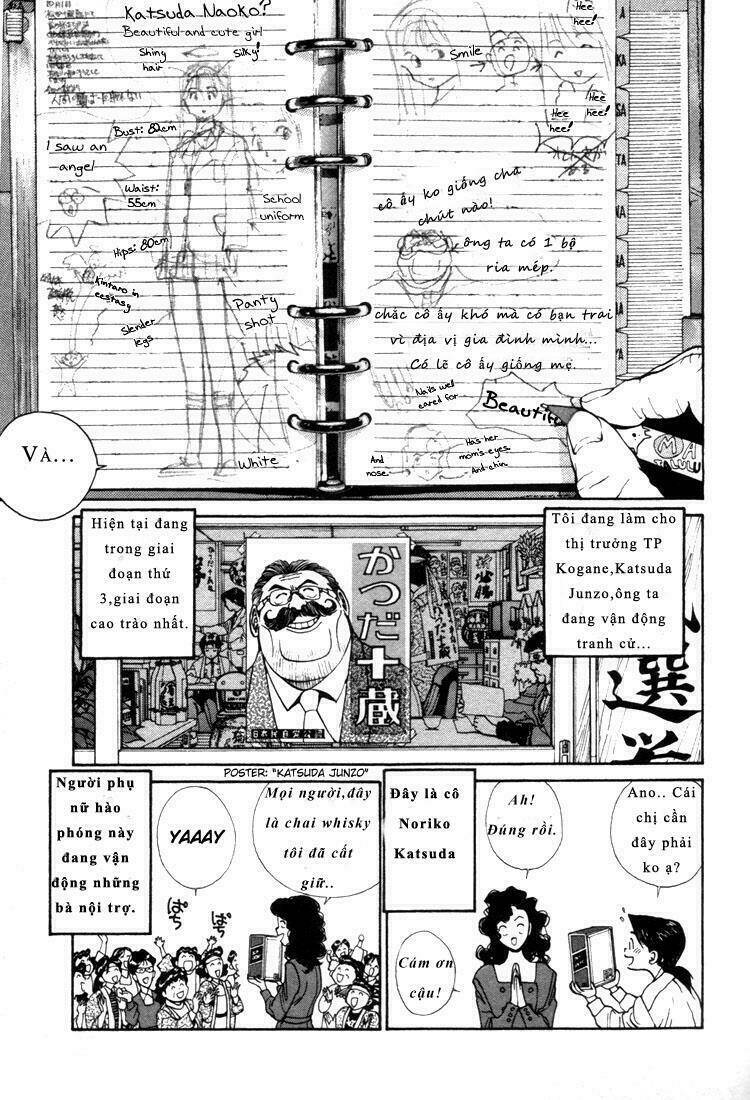 Katsuda Naoko?
Beautiful and cute girl
Shiny
hair
Silky!
Bust: 82cm
I saw an
angel
Waist:
55cm
School
uniform
Hips: 80cm
Kintaro in
ecstasy
Slender
legs
Panty
shot
White
Smile
Hee
hee!
Hee
hee!
Hee
hee!
A
KA
SA
TA
NA
cô ấy ko giống cha
chút nào!
ông ta có 1 bộ
ria mép.
chắc cô ấy khó mà có bạn trai
vì địa vị gia đình mình...
Có lẽ cô ấy giống mẹ.
Nails well
cared for
Beautiful
And
nose
Has her
mom's eyes.
And chin.
Và...
Tôi đang làm cho
thị trưởng TP
Kogane,Katsuda
Junzo,ông ta
đang vận động
tranh cử...
Hiện tại đang
trong giai
đoạn thứ
3,giai đoạn
cao trào nhất.
かつだ十蔵
選挙
POSTER: "KATSUDA JUNZO"
Ano.. Cái
chị cần
đây phải
ko ạ?
Ah!
Đúng rồi.
Đây là cô
Noriko
Katsuda
Cám ơn
cậu!
Mọi người,đây
là chai whisky
tôi đã cất
giữ..
YAAAY
Người phụ
nữ hào
phóng này
đang vận
động những
bà nội trợ.
ぱち
ぱち